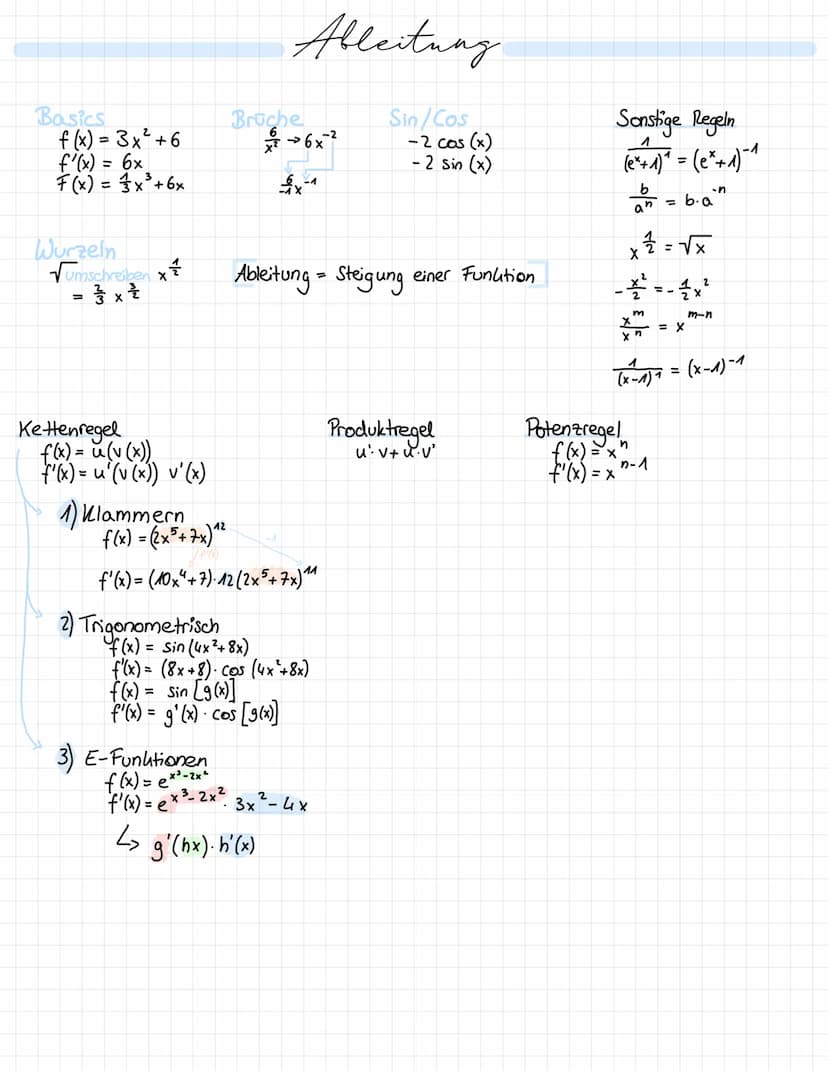 Ableitung
Basics
f(x) = 3x² + 6
f'(x) = 6x
F(x) = 1/3 x³ + 6x
Brüche
6/x² → 6x⁻²
6/-1 x⁻¹
Sin/Cos
-2 cos (x)
- 2 sin (x)
Sonstige Regeln
1/(eˣ+1)¹ = (eˣ+1)⁻¹
b/aⁿ = b·a⁻ⁿ
x^(1/2) = √x
- x²/2 = - 1/2 x²
xᵐ/xⁿ = x^(m-n)
1/(x-1)¹ = (x-1)⁻¹
Wurzeln
√ umschreiben x^(1/2)
= 2/3 x^(3/2)
[Ableitung = Steigung einer Funktion]
Kettenregel
f(x) = u(v(x))
f'(x) = u'(v(x)) v'(x)
Produktregel
u'·v + u·v'
Potenzregel
f(x) = xⁿ
f'(x) = x^(n-1)
1) Klammern
f(x) = (2x⁵+7x)¹²
f'(x) = (10x⁴+7)·12(2x⁵+7x)¹¹
2) Trigonometrisch
f(x) = sin(4x²+8x)
f'(x) = (8x+8)·cos (4x²+8x)
f(x) = sin [g(x)]
f'(x) = g'(x) · cos [g(x)]
3) E-Funktionen
f(x) = e^(x³-2x²)
f'(x) = e^(x³-2x²) · 3x²-4x
↳ g'(hx)·h'(x)